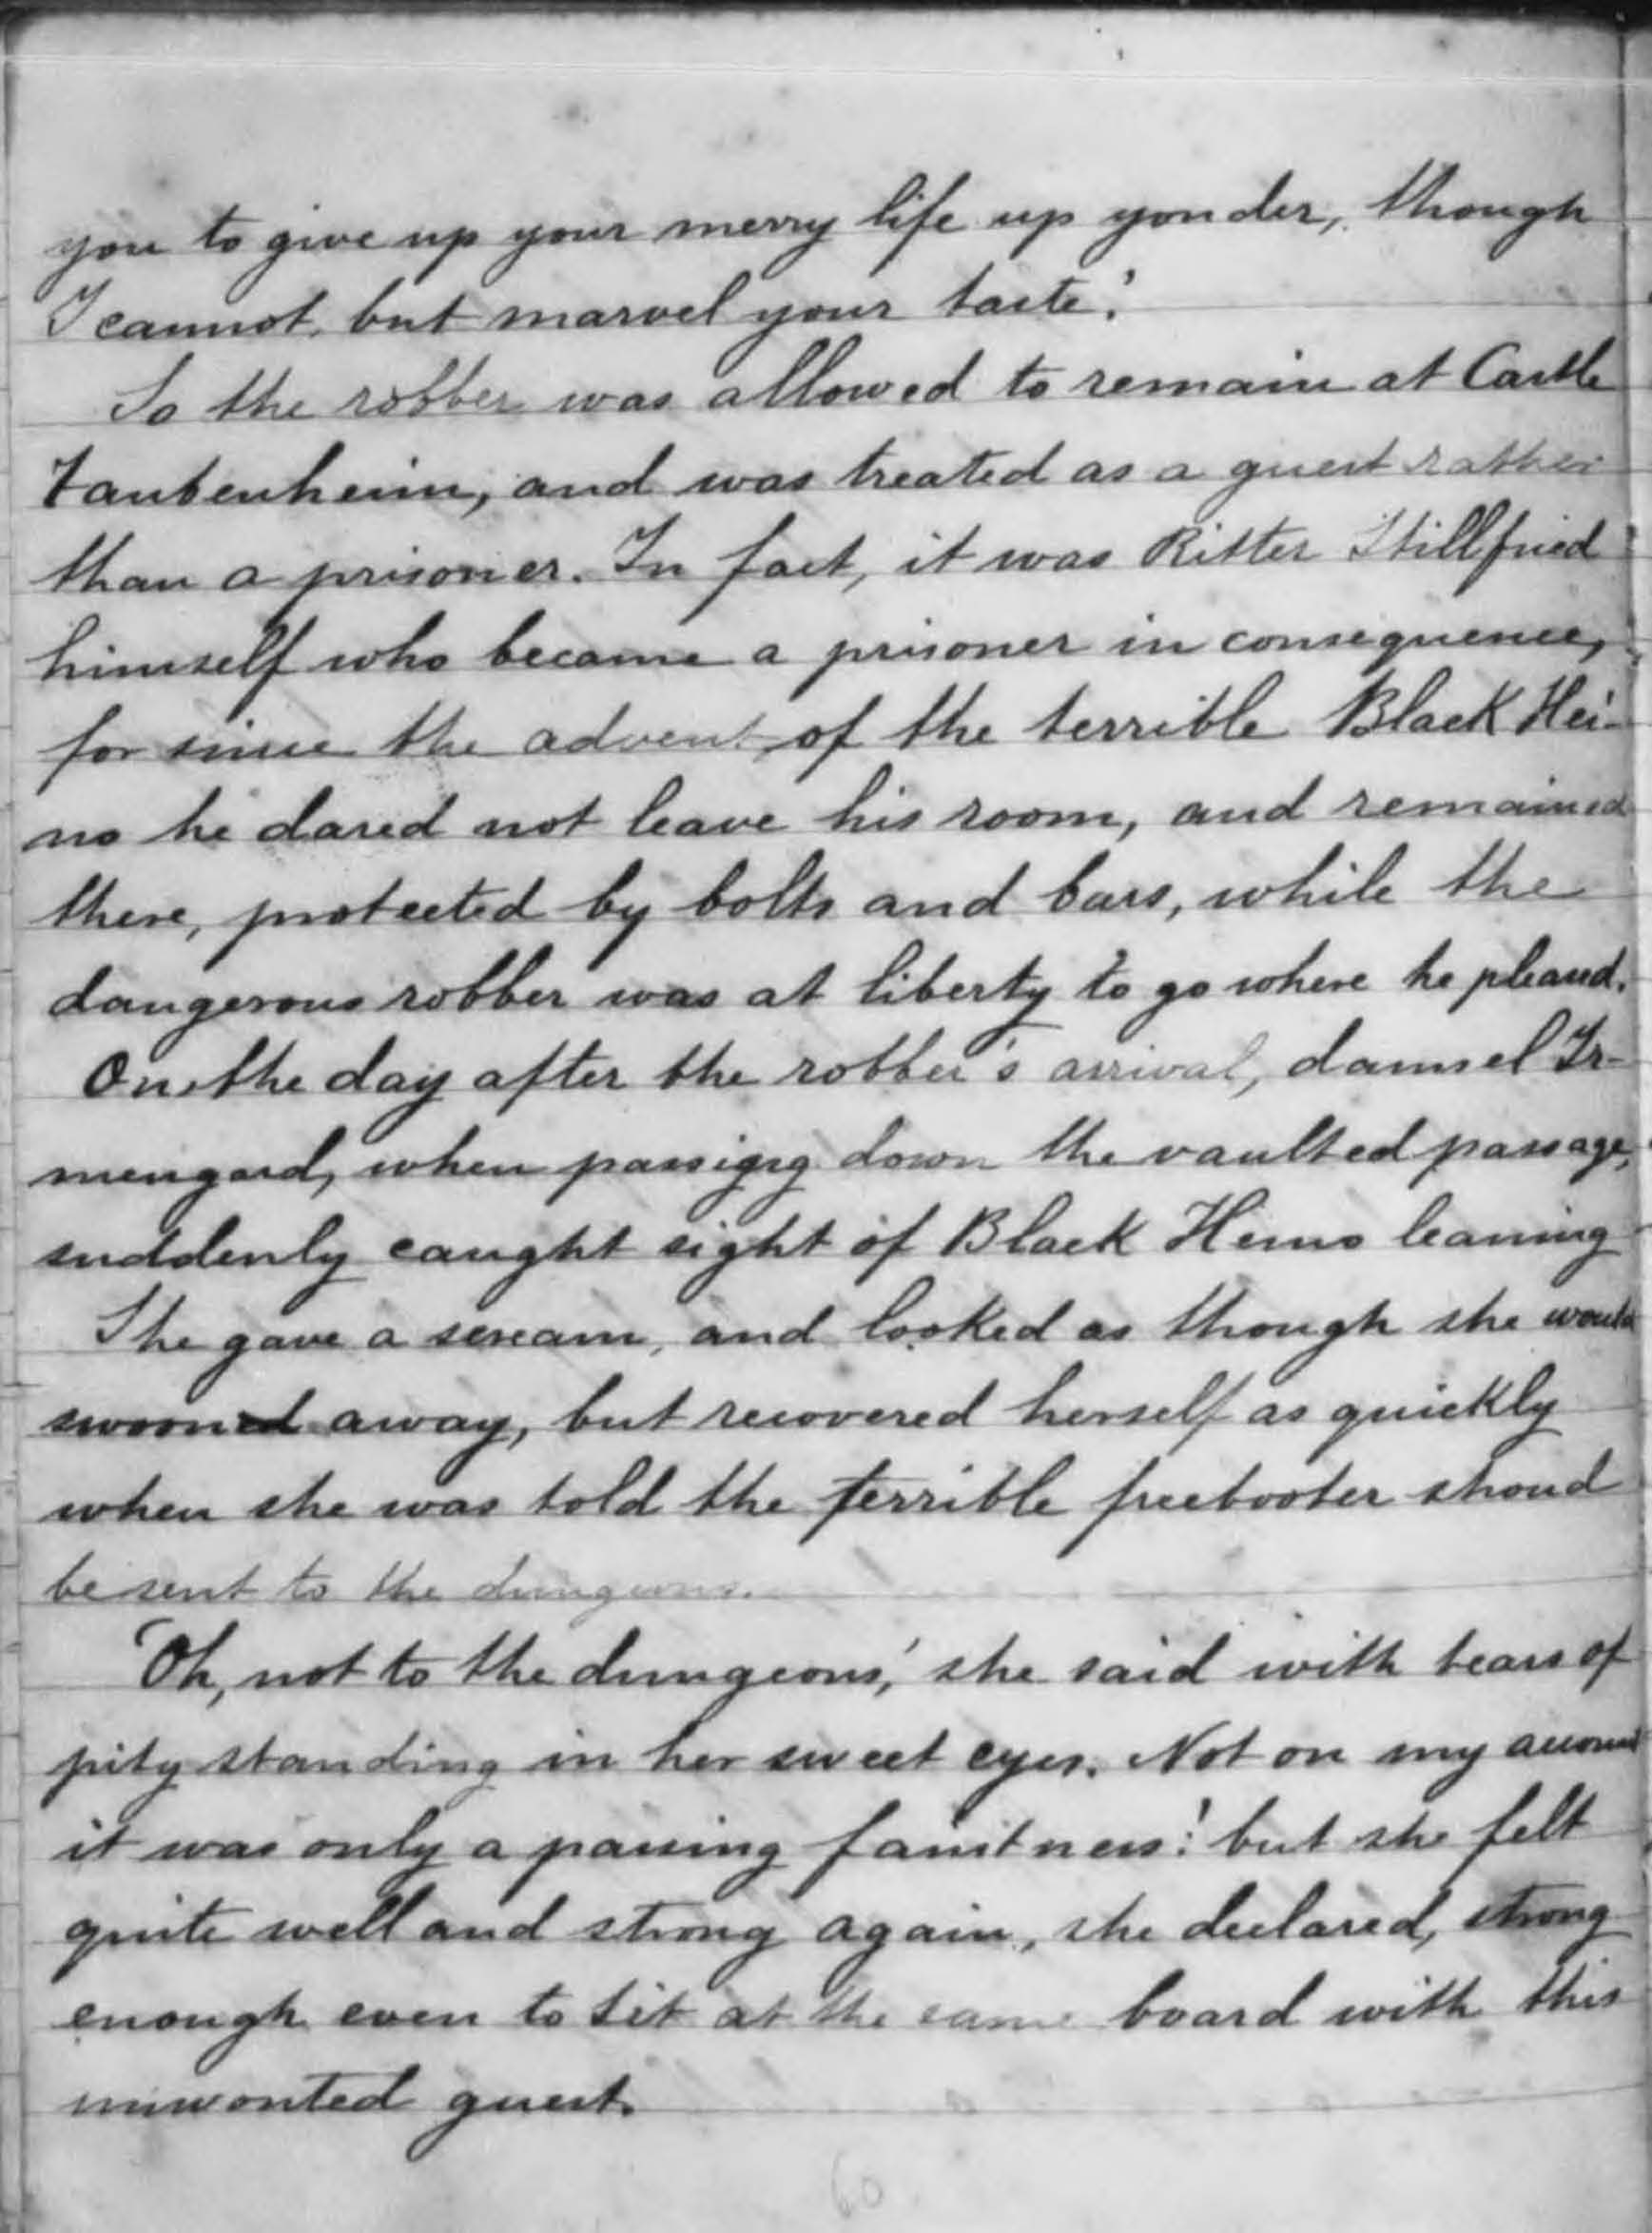 you to give up your merry life up yonder, though
I cannot but marvel your taste.'
So the robber was allowed to remain at Castle
Taubenheim, and was treated as a guest rather
than a prisoner. In fact, it was Ritter Stillfried
himself who became a prisoner in consequence,
for since the advent of the terrible Black Hei-
no he dared not leave his room, and remained
there, protected by bolts and bars, while the
dangerous robber was at liberty to go where he pleased.
On the day after the robber's arrival, damsel Ir-
mengard, when passing down the vaulted passage,
suddenly caught sight of Black Heino leaning
She gave a scream, and looked as though she would
swooned away, but recovered herself as quickly
when she was told the terrible freebooter shoud
be sent to the dungeons.
'Oh, not to the dungeons,' she said with tears of
pity standing in her sweet eyes. Not on my account
it was only a passing faintness:' but she felt
quite well and strong again, she declared, strong
enough even to sit at the same board with this
unwonted guest.
60